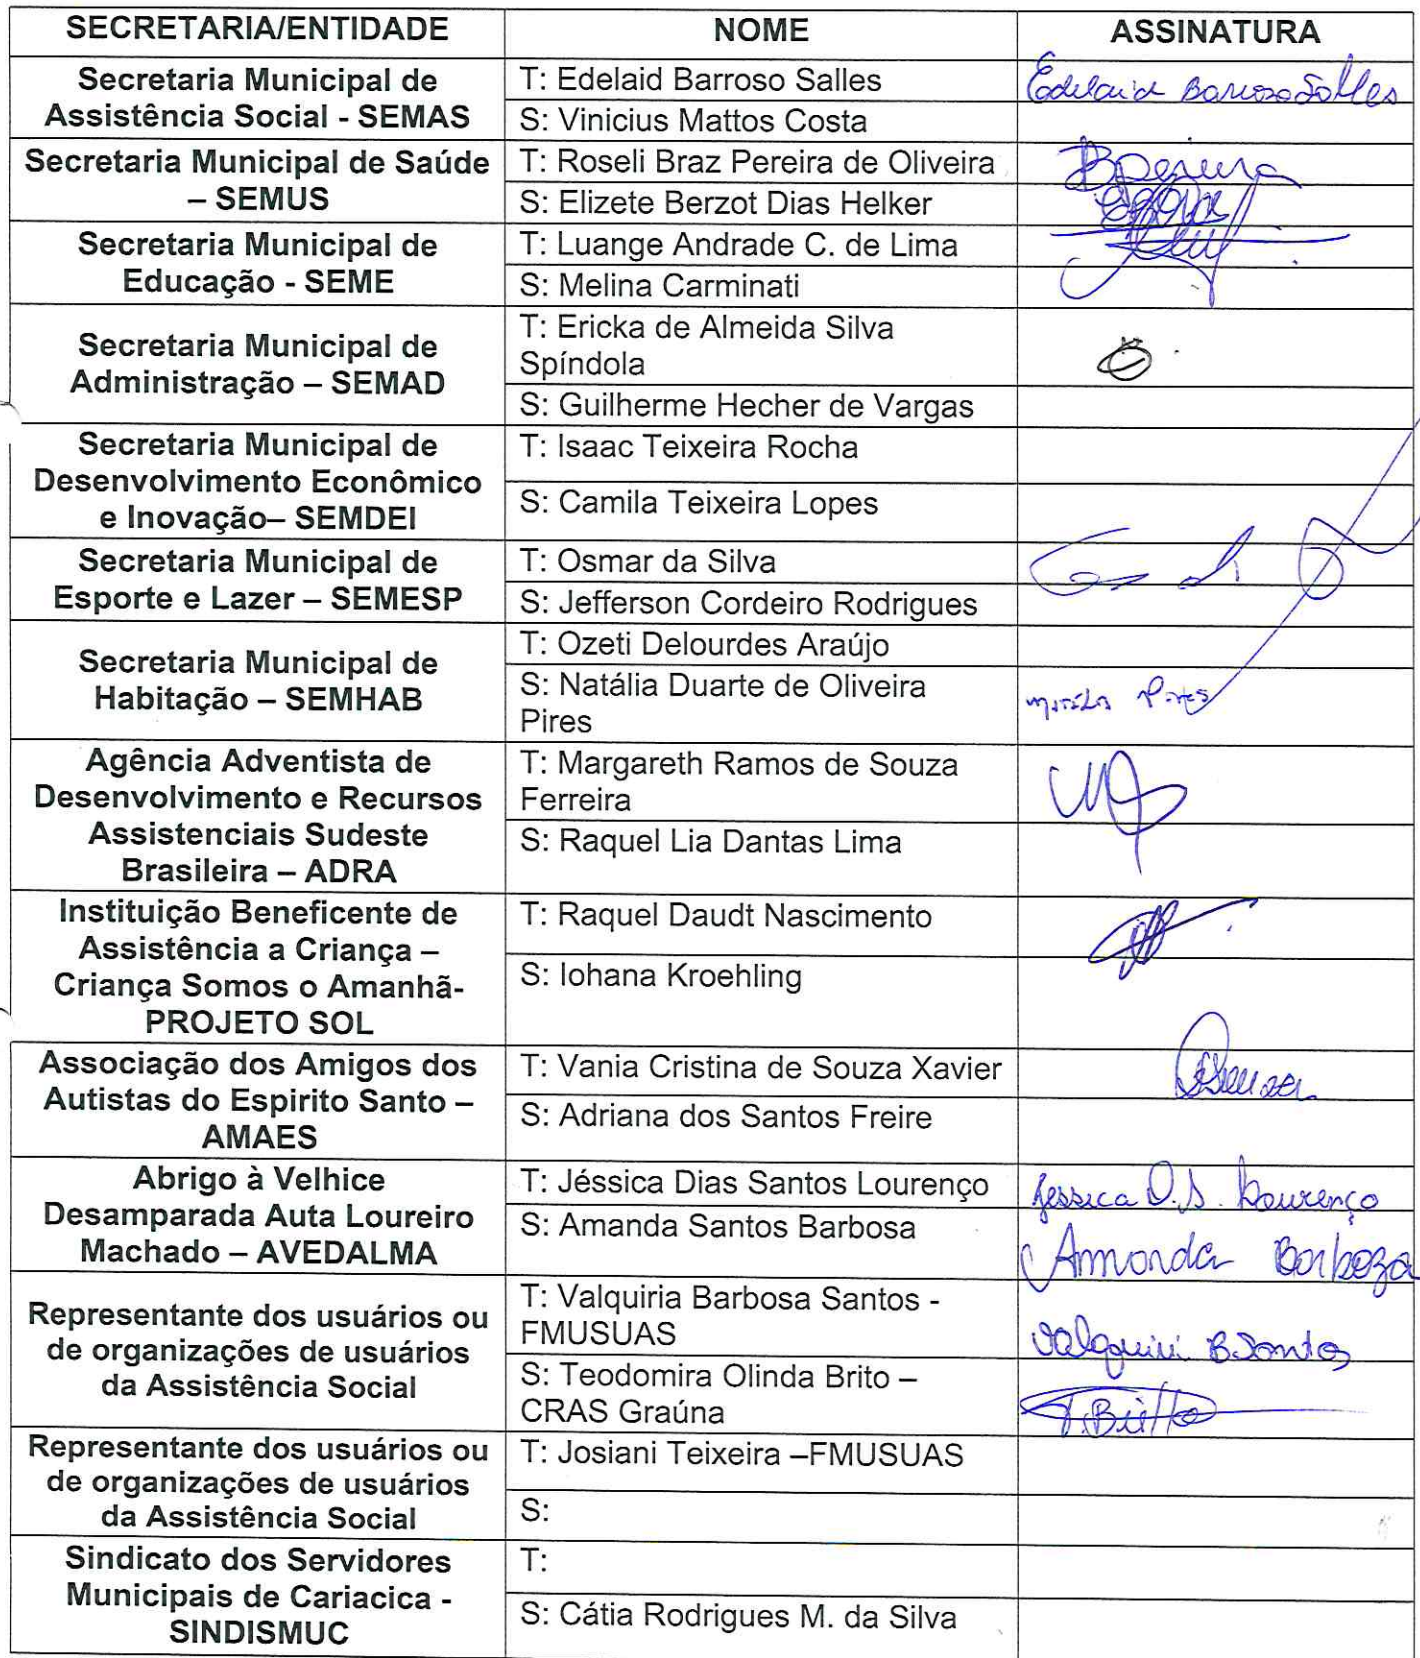 SECRETARIA/ENTIDADE NOME ASSINATURA
Secretaria Municipal de
Assistência Social - SEMAS
T: Edelaid Barroso Salles
Edelaid Barroso Salles
S: Vinicius Mattos Costa
Secretaria Municipal de Saúde
– SEMUS
T: Roseli Braz Pereira de Oliveira
BPereira
S: Elizete Berzot Dias Helker
Secretaria Municipal de
Educação - SEME
T: Luange Andrade C. de Lima
S: Melina Carminati
Secretaria Municipal de
Administração – SEMAD
T: Ericka de Almeida Silva
Spíndola
S: Guilherme Hecher de Vargas
Secretaria Municipal de
Desenvolvimento Econômico
e Inovação– SEMDEI
T: Isaac Teixeira Rocha
S: Camila Teixeira Lopes
Secretaria Municipal de
Esporte e Lazer – SEMESP
T: Osmar da Silva
S: Jefferson Cordeiro Rodrigues
Secretaria Municipal de
Habitação – SEMHAB
T: Ozeti Delourdes Araújo
S: Natália Duarte de Oliveira
Pires
Pires
Agência Adventista de
Desenvolvimento e Recursos
Assistenciais Sudeste
Brasileira – ADRA
T: Margareth Ramos de Souza
Ferreira
S: Raquel Lia Dantas Lima
Instituição Beneficente de
Assistência a Criança –
Criança Somos o Amanhã-
PROJETO SOL
T: Raquel Daudt Nascimento
S: Iohana Kroehling
Associação dos Amigos dos
Autistas do Espirito Santo –
AMAES
T: Vania Cristina de Souza Xavier
S: Adriana dos Santos Freire
Abrigo à Velhice
Desamparada Auta Loureiro
Machado – AVEDALMA
T: Jéssica Dias Santos Lourenço
Jessica D.S. Lourenço
S: Amanda Santos Barbosa
Amanda Barboza
Representante dos usuários ou
de organizações de usuários
da Assistência Social
T: Valquiria Barbosa Santos -
FMUSUAS
Valquiri B. Santos
S: Teodomira Olinda Brito –
CRAS Graúna
T. Britto
Representante dos usuários ou
de organizações de usuários
da Assistência Social
T: Josiani Teixeira –FMUSUAS
S:
Sindicato dos Servidores
Municipais de Cariacica -
SINDISMUC
T:
S: Cátia Rodrigues M. da Silva